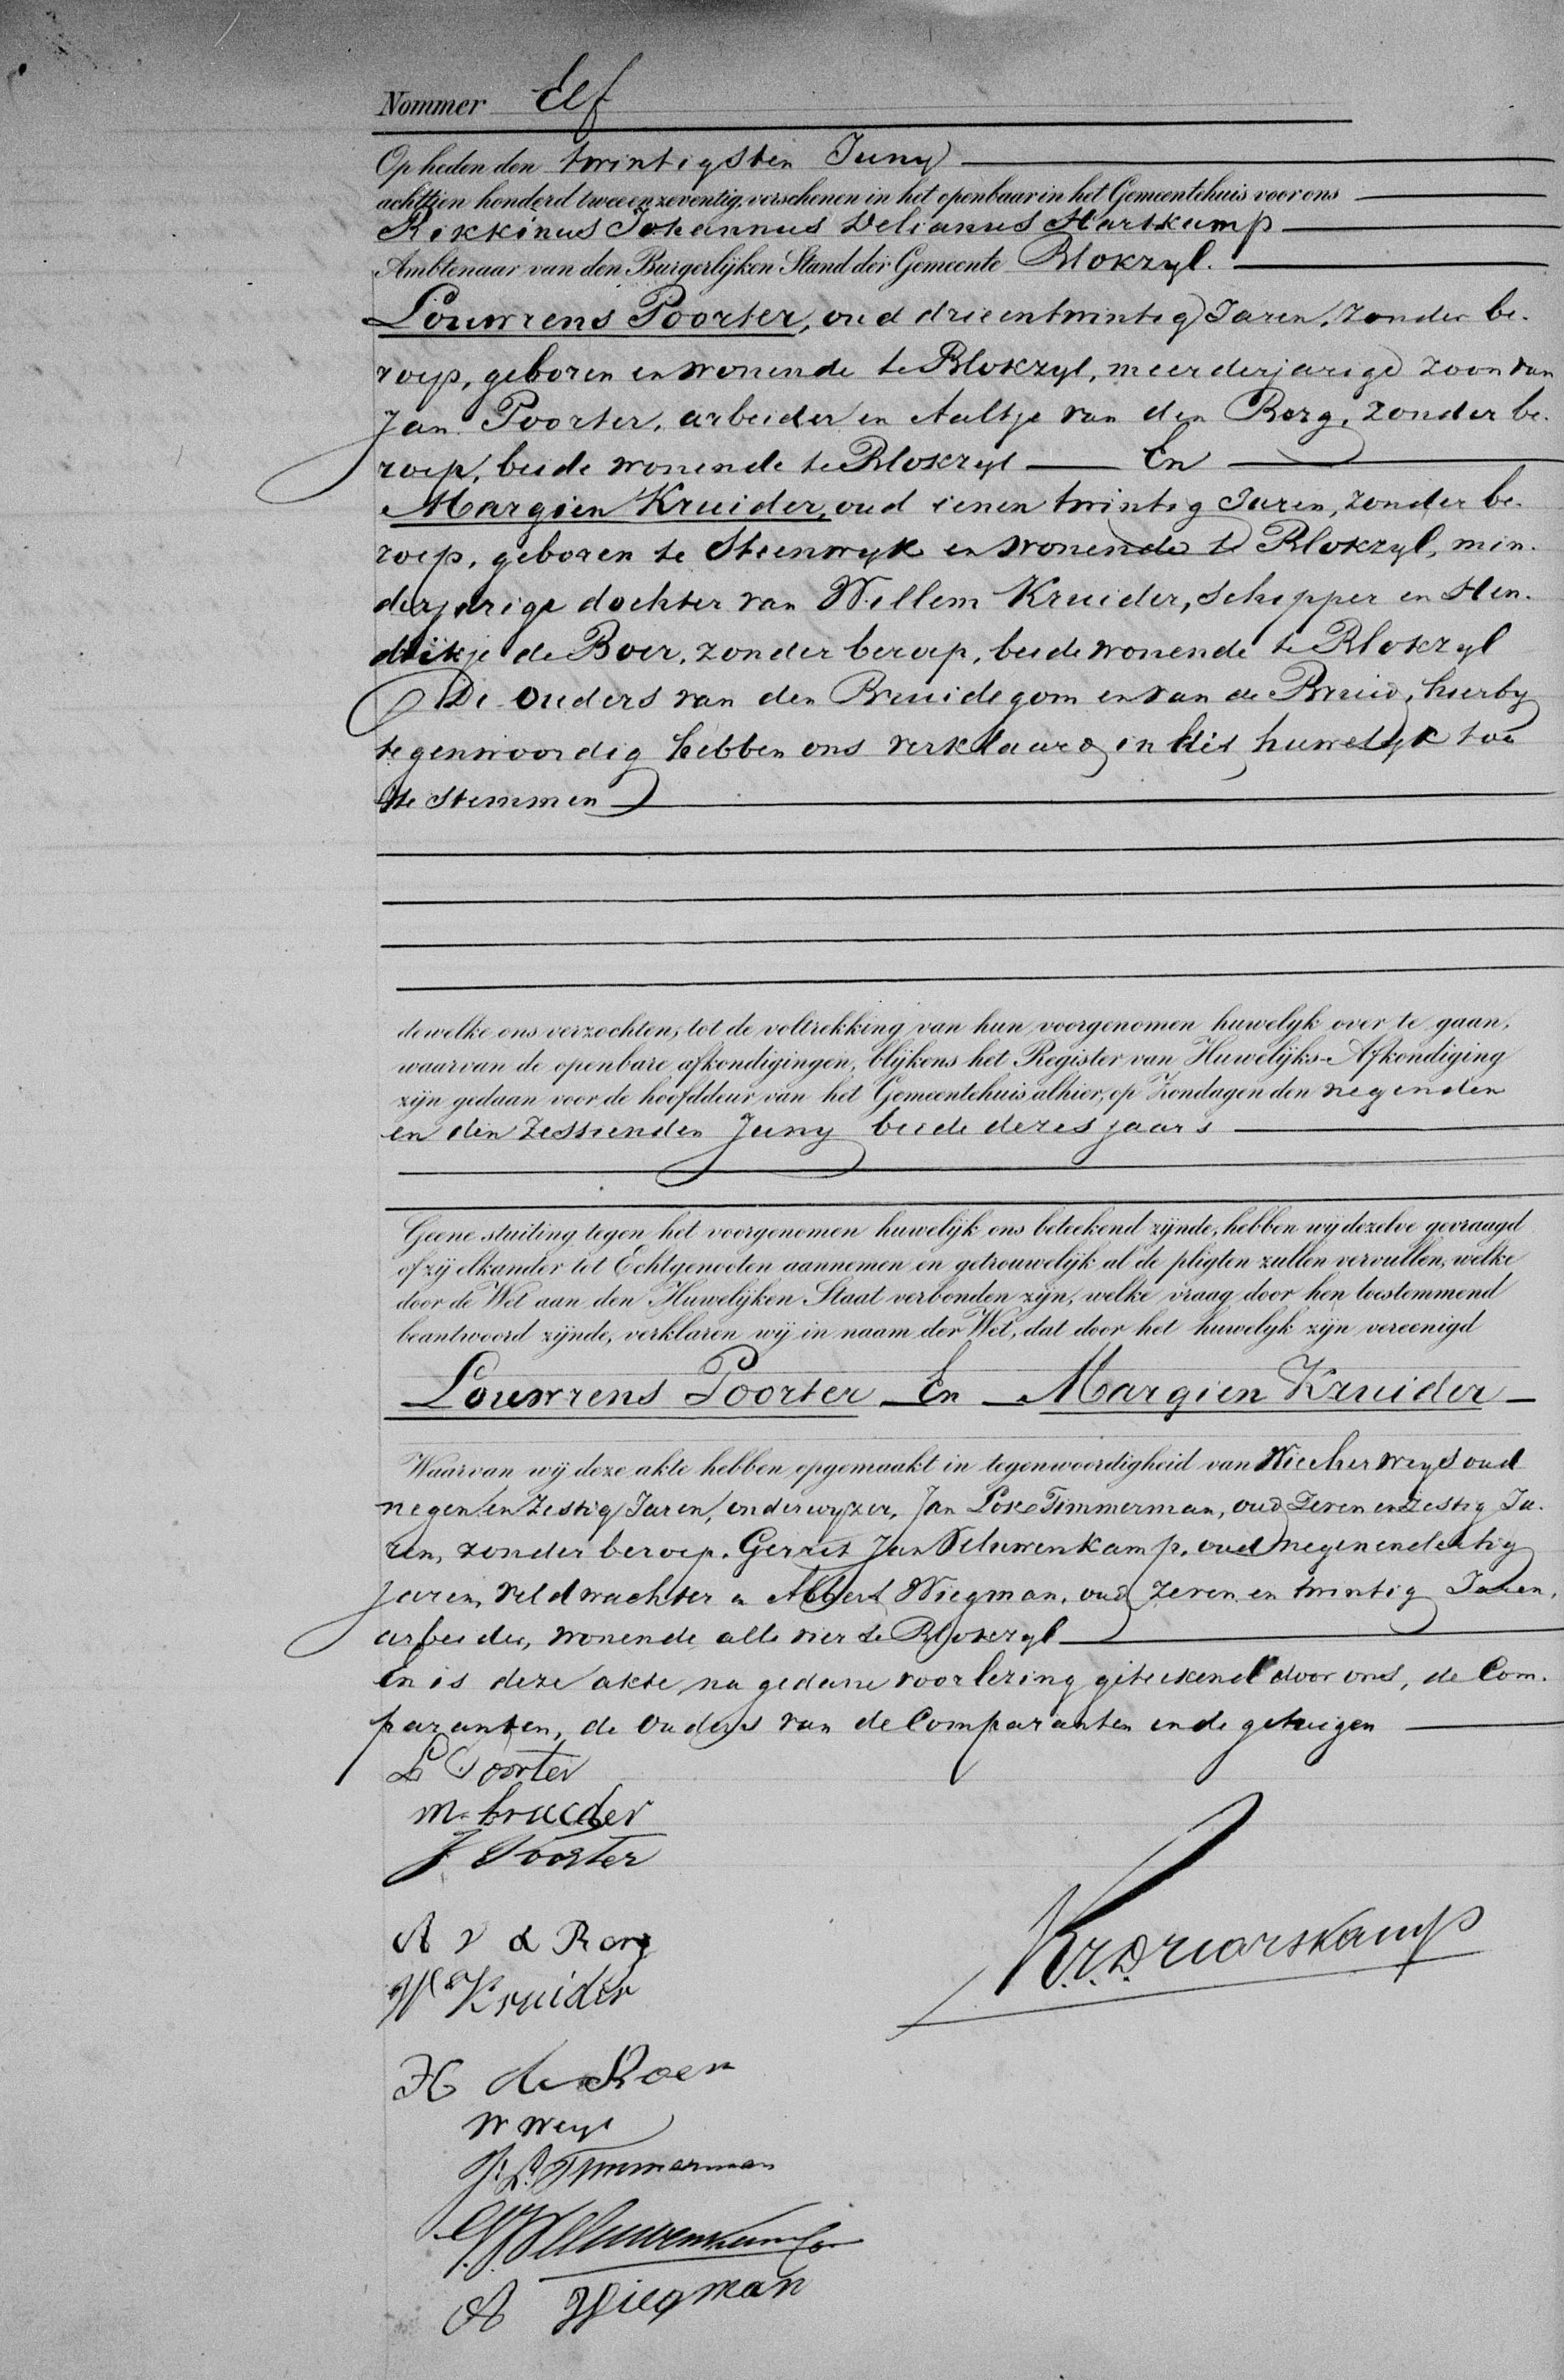 Nommer Elf
Op heden den twintigsten Juny
achttien honderd tweeenzeventig, verschenen in het openbaar in het Gemeentehuis voor ons
Rikkinus Johannus Velianus Harskamp
Ambtenaar van den Burgerlijken Stand der Gemeente Blokzyl.
Louwrens Poorter, oud drieentwintig Jaren, zonder be-
roep, geboren en wonende te Blokzyl, meerderjarige zoon van
Jan Poorter, arbeider en Aaltje van den Berg, zonder be-
roep, beide wonende te Blokzyl En
Margien Kruider, oud eenen twintig Jaren, zonder be-
roep, geboren te Steenwyk en wonende te Blokzyl, min-
derjarige dochter van Willem Kruider, Schipper en Hen-
drikje de Boer, zonder beroep, beide wonende te Blokzyl
De ouders van den Bruidegom en van de Bruid, hierby
tegenwoordig hebben ons verklaard in dit huwelyk toe
te stemmen
dewelke ons verzochten, tot de voltrekking van hun voorgenomen huwelyk over te gaan,
waarvan de openbare afkondigingen, blijkens het Register van Huwelijks-Afkondiging
zijn gedaan voor de hoofddeur van het Gemeentehuis alhier, op Zondagen den negenden
en den zestienden Juny beide dezes jaars
Geene stuiting tegen het voorgenomen huwelijk ons beteekend zijnde, hebben wij dezelve gevraagd
of zij elkander tot Echtgenooten aannemen en getrouwelijk al de pligten zullen vervullen, welke
door de Wet aan den Huwelijken Staat verbonden zijn, welke vraag door hen toestemmend
beantwoord zijnde, verklaren wij in naam der Wet, dat door het huwelyk zijn vereenigd
Louwrens Poorter En Margien Kruider
Waarvan wij deze akte hebben opgemaakt in tegenwoordigheid van Wiecher Weys oud
negen en zestig Jaren, onderwyzer, Jan Lok Timmerman, oud zeven en zestig Ja-
ren, zonder beroep, Gerrit Jan Veluwenkamp, oud negenendertig
jaren, veldwachter en Albert Wiegman, oud zeven en twintig Jaren,
arbeider, wonende alle vier te Blokzyl
En is deze akte na gedane voorlezing geteekend door ons, de Com-
paranten, de ouders van de Comparanten en de getuigen
L Poorter
M. Kruider
J Poorter
A v d Berg
W Kruider
H de Boer
W Weys
J. L. Timmerman
G J Veluwenkamp
A Wiegman